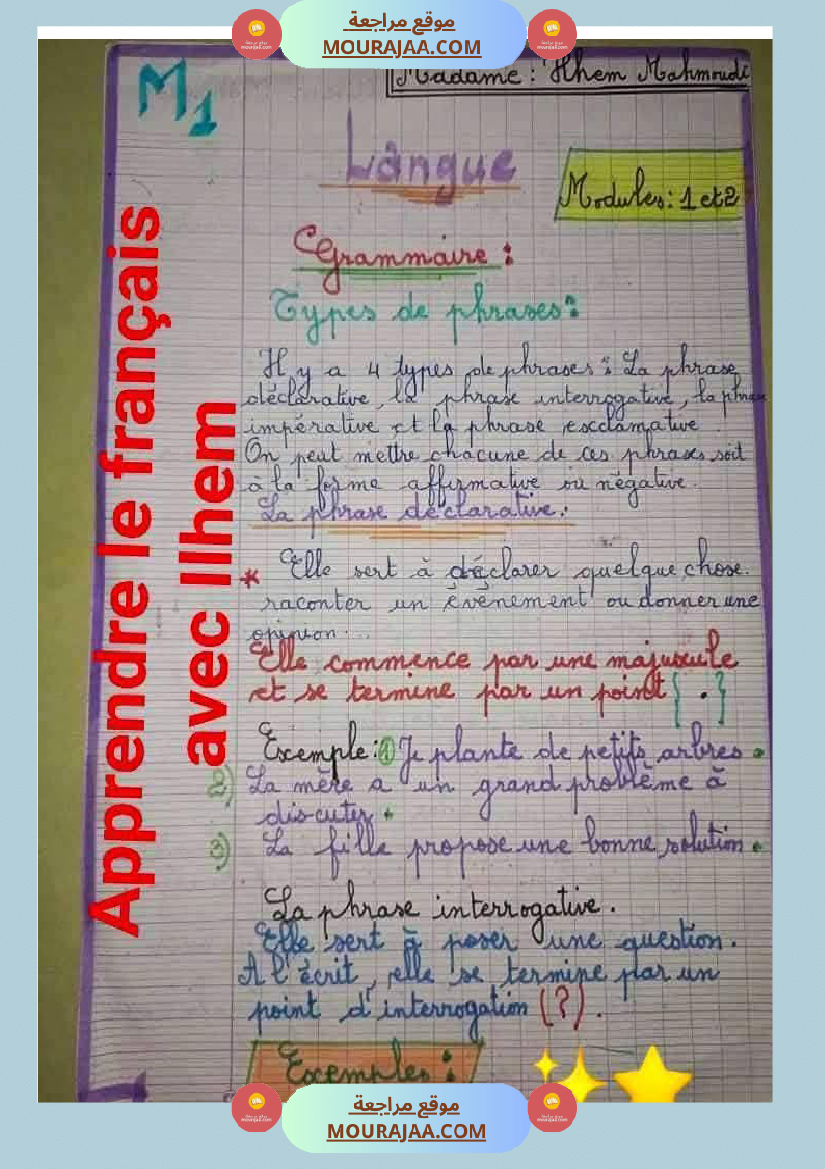 موقع مراجعة
MOURAJAA.COM
Madame : Ilhem Mahmoudi
M1
Langue
Modules : 1 et 2
Grammaire :
Types de phrases :
Il y a 4 types de phrases : La phrase
déclarative, la phrase interrogative, la phrase
impérative et la phrase exclamative.
On peut mettre chacune de ces phrases soit
à la forme affirmative ou négative.
La phrase déclarative :
* Elle sert à déclarer quelque chose.
raconter un événement ou donner une
opinion...
Elle commence par une majuscule
et se termine par un point { . }
Exemple : 1) Je plante de petits arbres.
2) La mère a un grand problème à
discuter.
3) La fille propose une bonne solution.
La phrase interrogative.
Elle sert à poser une question.
A l'écrit, elle se termine par un
point d'interrogation (?).
Exemples :
Apprendre le français
avec Ilhem
موقع مراجعة
MOURAJAA.COM